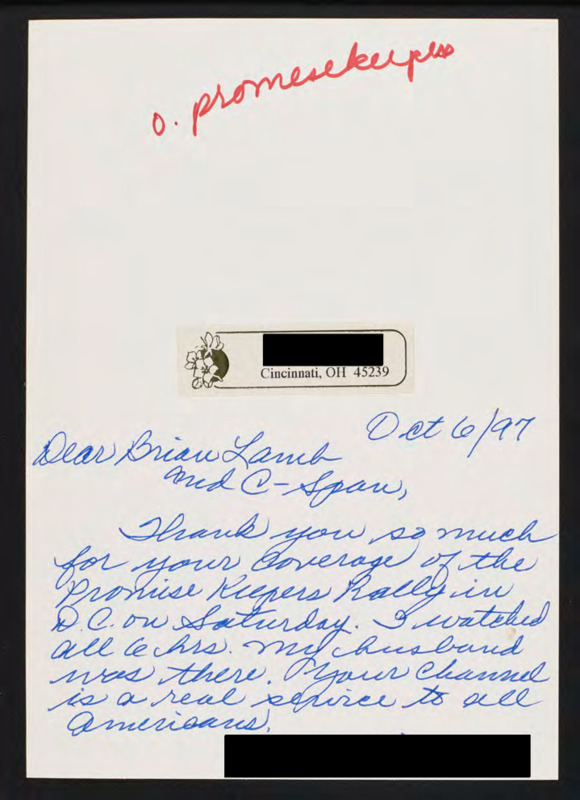 o. promisekeepers
Cincinnati, OH 45239
Oct 6/97
Dear Brian Lamb
and C-Span,
Thank you so much
for your coverage of the
Promise Keepers Rally in
D.C. on Saturday. I watched
all 6 hrs. My husband
was there. Your channel
is a real service to all
Americans.